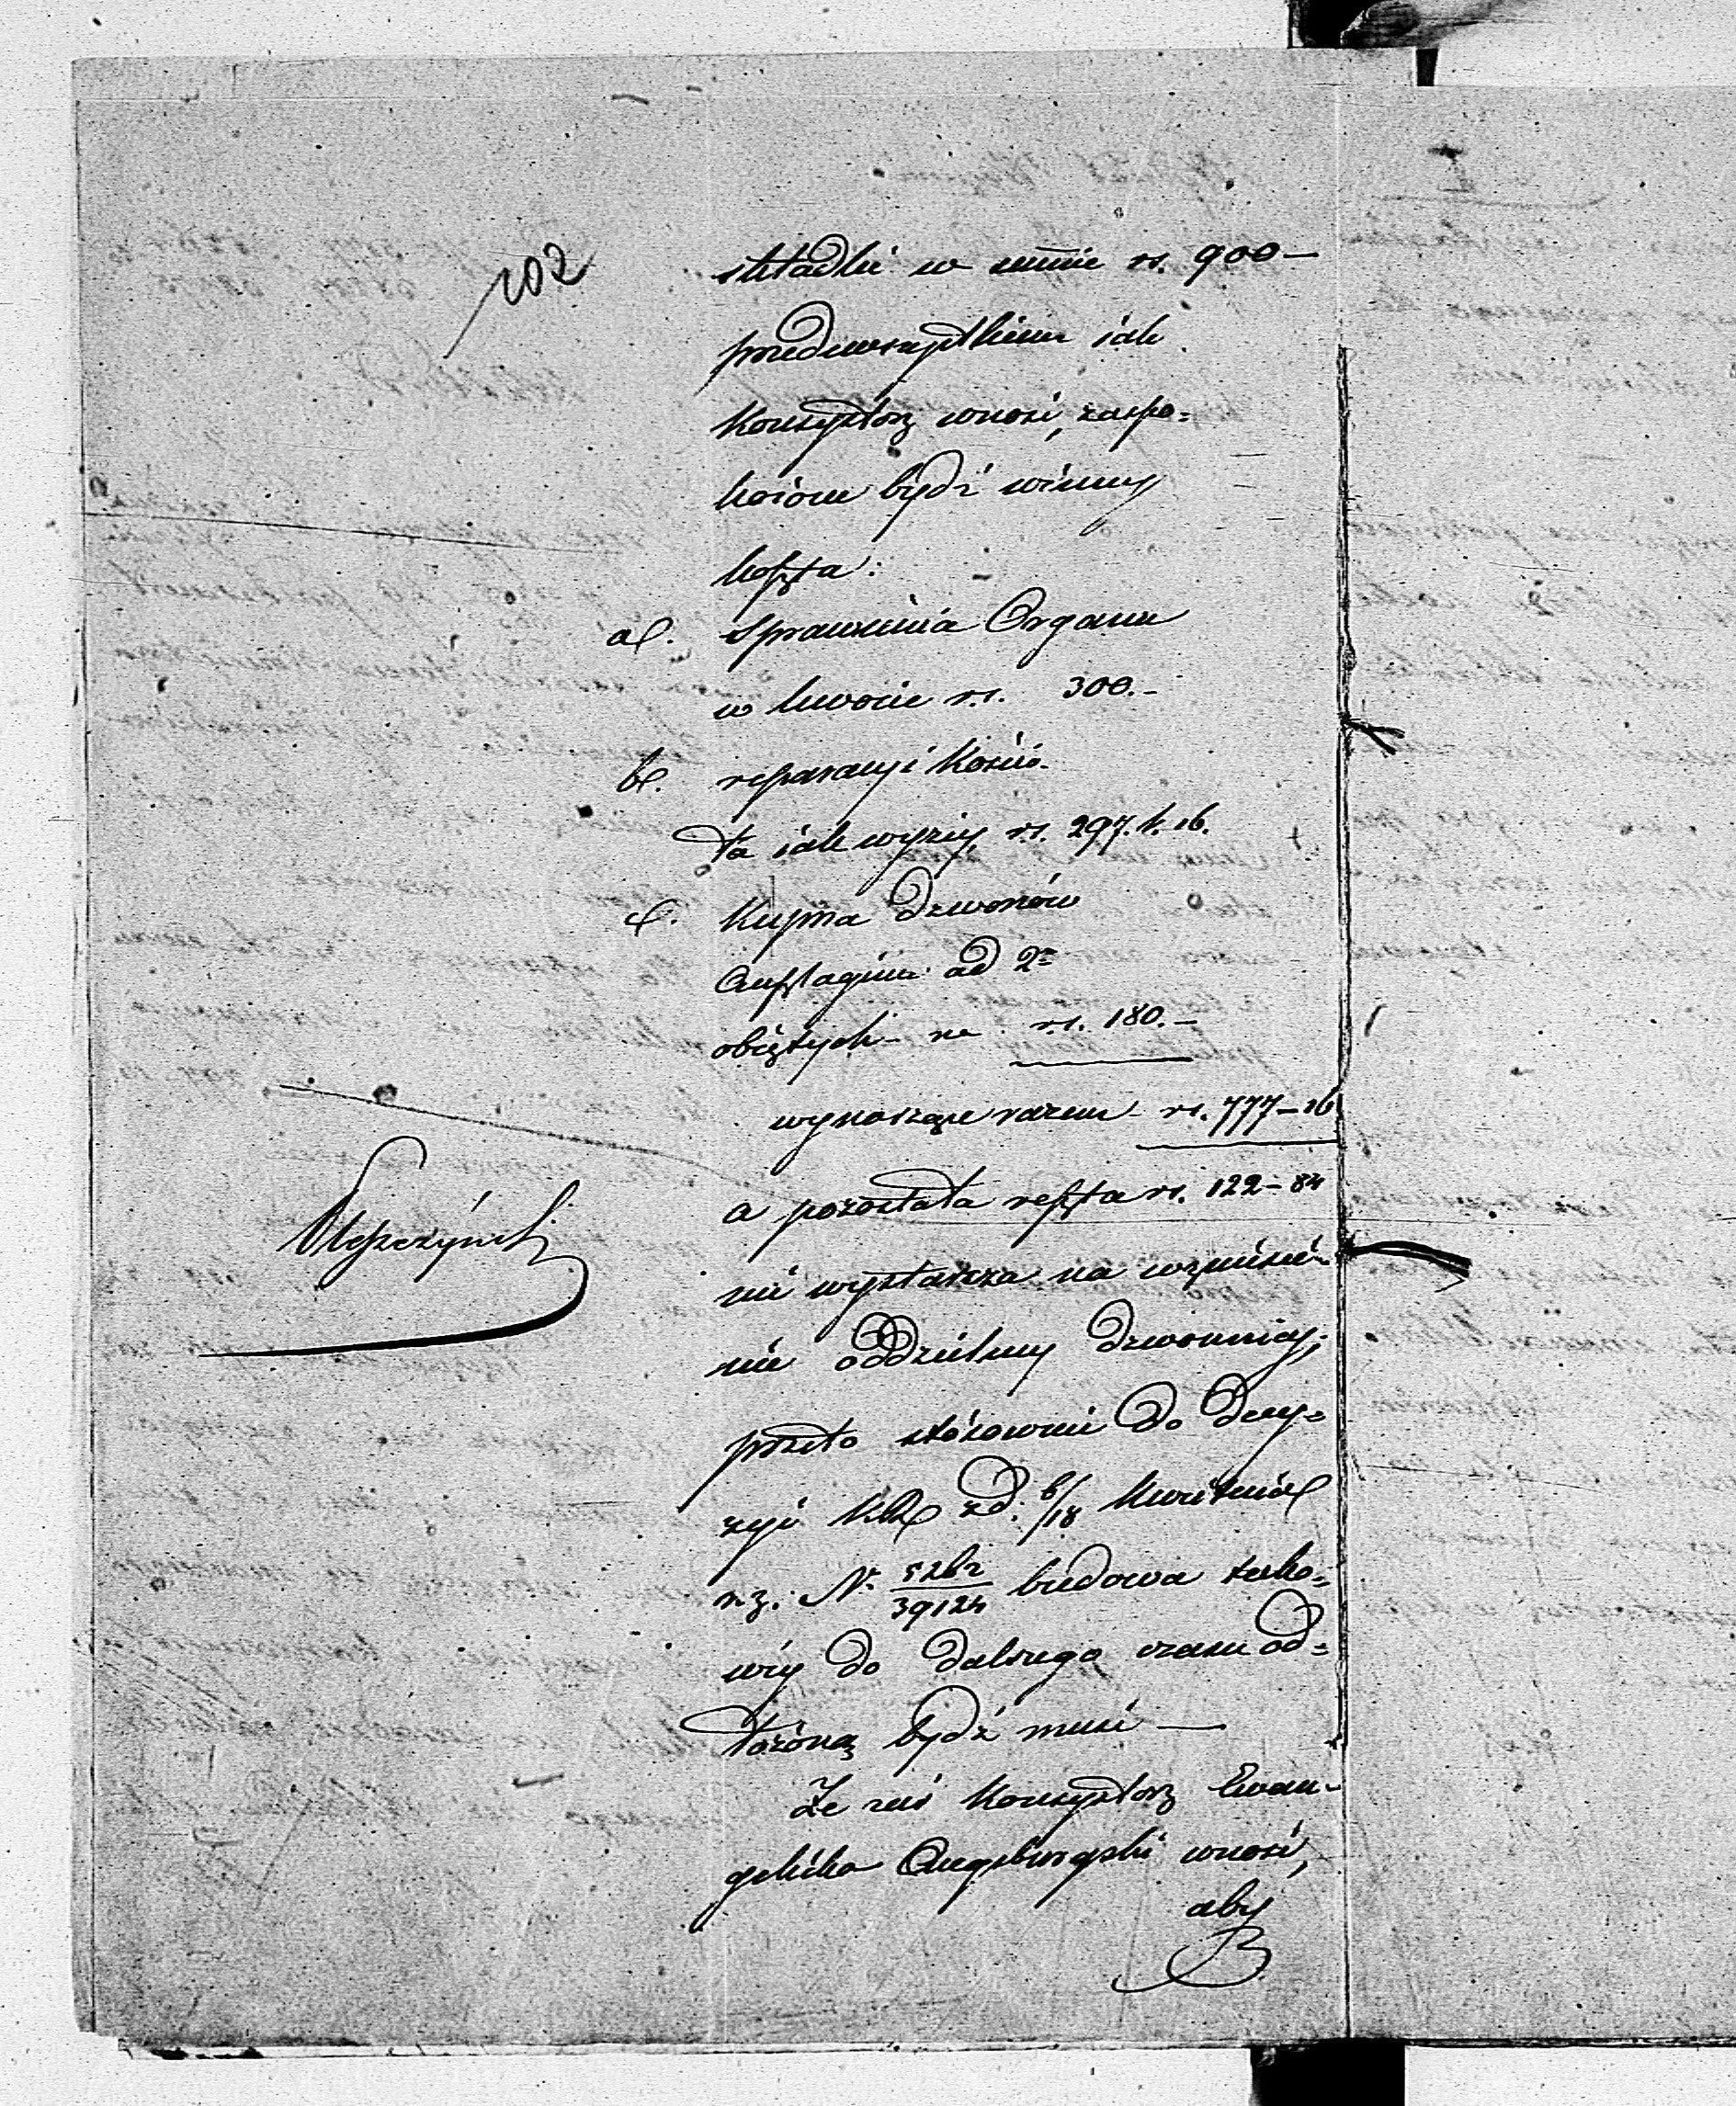 102
składki w sumie rs. 900 —
przedewszystkiem iak
Konsystorz wnosi, zaspo=
koione bydź winny
koszta:
a/. Sprawienia Organu
w kwocie rs. 300.—
b/. reparacyi Kościo-
ła iak wyżey, rs. 297. k. 16.
c/. Kupna dzwonów
Anszlagiem ad 2=
obiętych na rs. 180.—
wynoszące razem rs. 777—16
a pozostała reszta rs. 122—84
nie wystarcza na wzniesie-
nie oddzielney dzwonnicy,
przeto stósownie do decy=
zyi KR zd. 6/18 Kwietnia
r.z. Nr 5262/39124 budowa tako=
wéy do dalszego czasu od=
łożoną bydź musi —
Że zaś Konsystorz Ewan-
gelicko Augsburgski wnosi,
aby